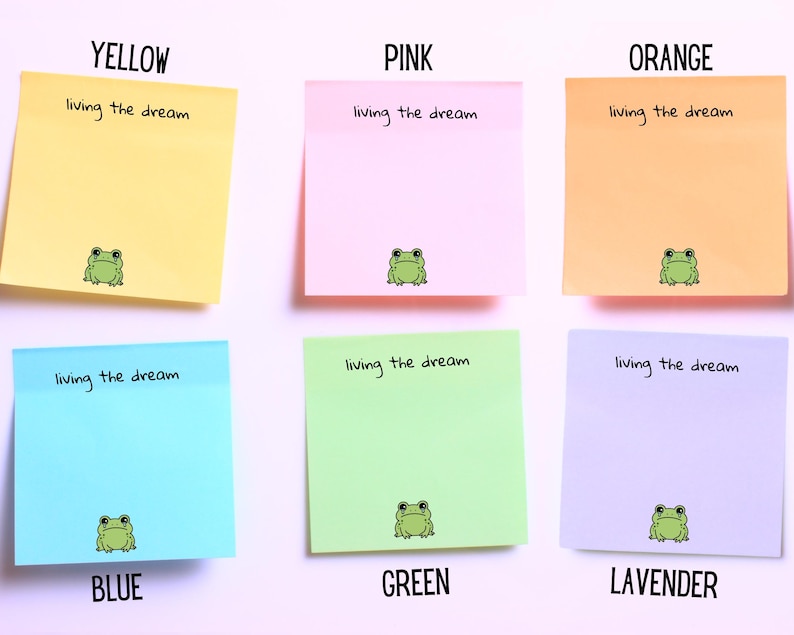 YELLOW
PINK
ORANGE
living the dream
living the dream
living the dream
living the dream
living the dream
living the dream
BLUE
GREEN
LAVENDER